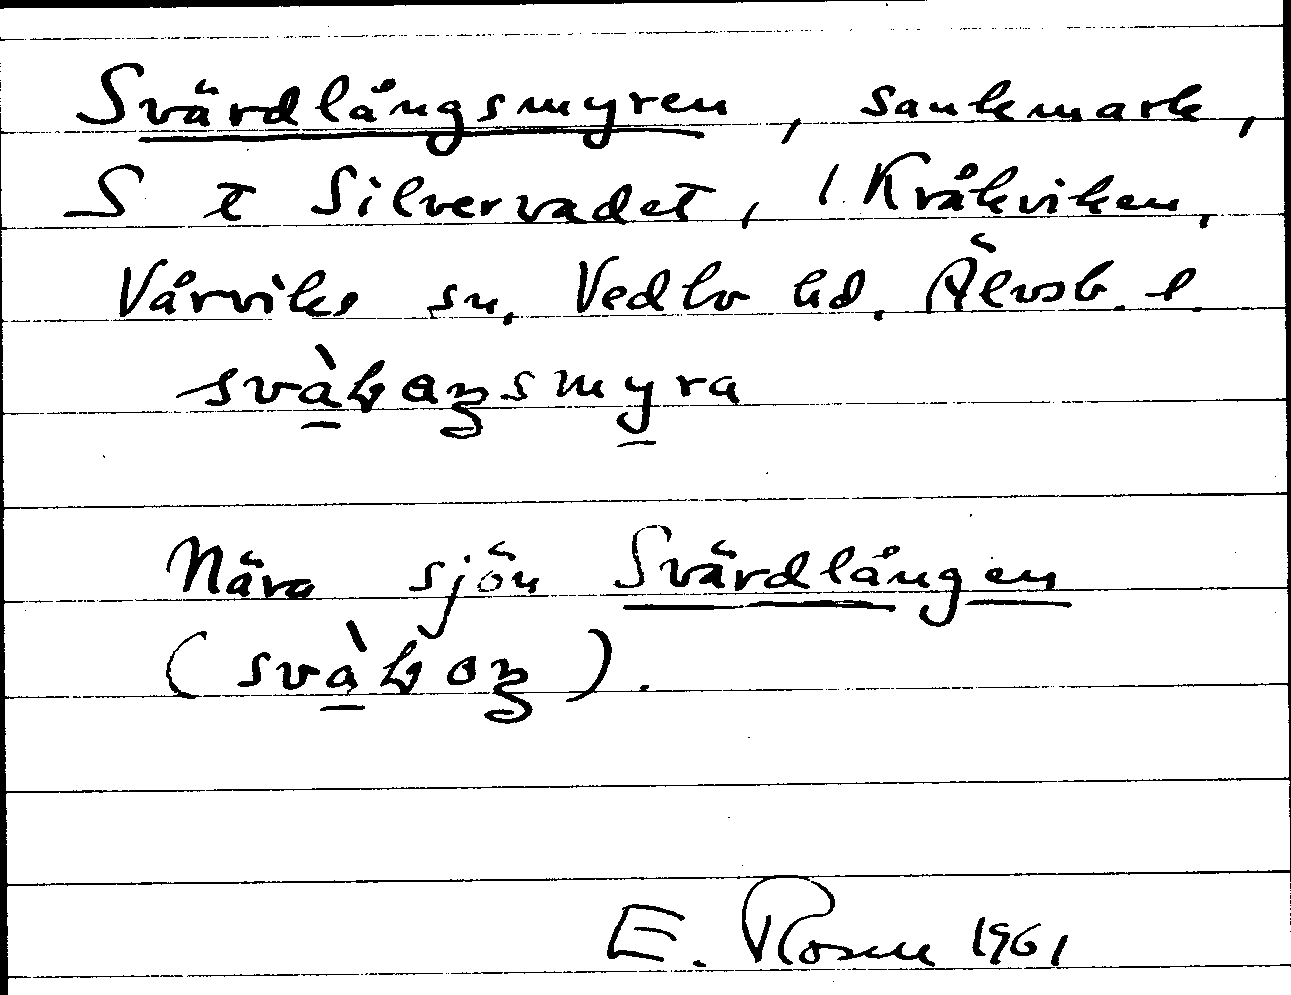 Svärdlångsmyren, sankmark,
S t Silvervadet, i Kråkviken,
Vårviks sn, Vedbo hd, Älvsb. l.
Nära sjön Svärdlången
E. Rosell 1961